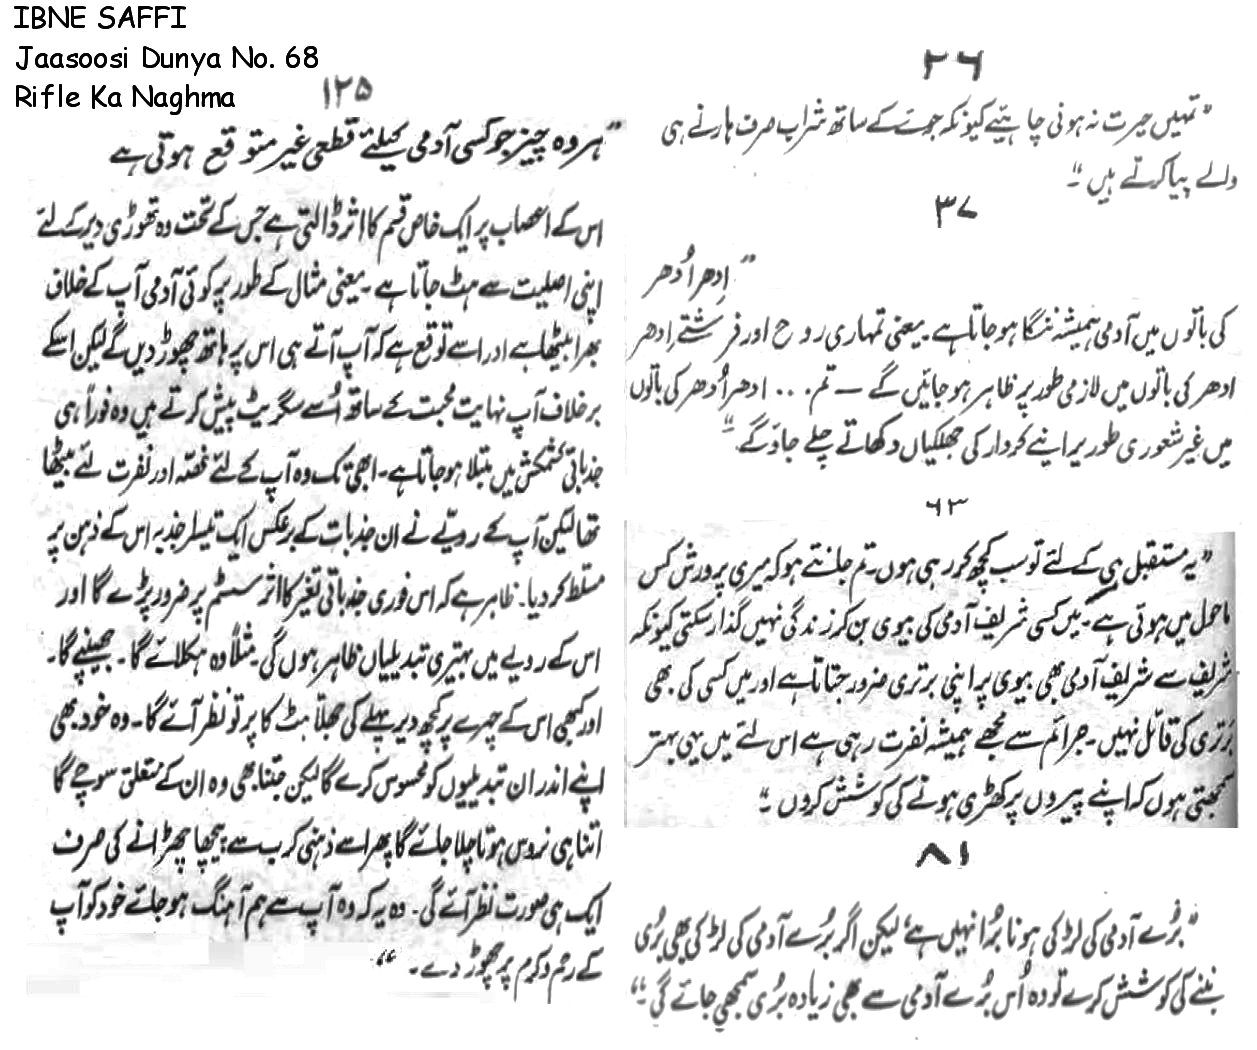 IBNE SAFFI
Jaasoosi Dunya No. 68
Rifle Ka Naghma
۲۶
"تمہیں حیرت نہ ہونی چاہئیے کیونکہ جوئے کے ساتھ شراب صرف ہارنے ہی
والے پیا کرتے ہیں"۔
۳۷
"اِدھر اُدھر
کی باتوں میں آدمی ہمیشہ ننگا ہو جاتا ہے۔ یعنی تمہاری روح اور فرشتے اِدھر
ادھر کی باتوں میں لازمی طور پر ظاہر ہو جائیں گے — تم... ادھر اُدھر کی باتوں
میں غیر شعوری طور پر اپنے کردار کی جھلکیاں دکھاتے چلے جاؤ گے۔"
۶۳
"یہ مستقبل ہی کے لئے تو سب کچھ کر رہی ہوں۔ تم جانتے ہو کہ میری پرورش کس
ماحول میں ہوئی ہے۔ میں کسی شریف آدمی کی بیوی بن کر زندگی نہیں گذار سکتی کیونکہ
شریف سے شریف آدمی بھی بیوی پر اپنی برتری ضرور جتاتا ہے اور میں کسی کی بھی
برتری کی قائل نہیں۔ جرائم سے مجھے ہمیشہ نفرت رہی ہے اس لئے میں یہی بہتر
سمجھتی ہوں کہ اپنے پیروں پر کھڑی ہونے کی کوشش کروں"۔
۸۱
"بُرے آدمی کی لڑکی ہونا بُرا نہیں ہے لیکن اگر بُرے آدمی کی لڑکی بھی بُری
بننے کی کوشش کرے تو وہ اُس بُرے آدمی سے بھی زیادہ بُری سمجھی جائے گی۔"
۱۲۵
"ہر وہ چیز جو کسی آدمی کیلئے قطعی غیر متوقع ہوتی ہے
اس کے اعصاب پر ایک خاص قسم کا اثر ڈالتی ہے جس کے تحت وہ تھوڑی دیر کے لئے
اپنی اصلیت سے ہٹ جاتا ہے۔ یعنی مثال کے طور پر کوئی آدمی آپ کے خلاف
بھرا بیٹھا ہے اور اسے توقع ہے کہ آپ آتے ہی اس پر ہاتھ چھوڑ دیں گے لیکن اسکے
برخلاف آپ نہایت محبت کے ساتھ اُسے سگریٹ پیش کرتے ہیں وہ فوراً ہی
جذباتی کشمکش میں مبتلا ہو جاتا ہے۔ ابھی تک وہ آپ کے لئے غصّہ اور نفرت لئے بیٹھا
تھا لیکن آپ کے رویّے نے ان جذبات کے برعکس ایک تیسرا جذبہ اس کے ذہن پر
مسلط کر دیا۔ ظاہر ہے کہ اس فوری جذباتی تغیر کا اثر سسٹم پر ضرور پڑے گا اور
اس کے رویے میں بہتیری تبدیلیاں ظاہر ہوں گی۔ مثلاً وہ ہکلائے گا۔ جھینپے گا۔
اور کبھی اس کے چہرے پر کچھ دیر پہلے کی جھلّاہٹ کا پر تو نظر آئے گا۔ وہ خود بھی
اپنے اندر ان تبدیلیوں کو محسوس کرے گا لیکن جتنا بھی وہ ان کے متعلق سوچے گا
اتنا ہی نروس ہوتا چلا جائے گا پھر اسے ذہنی کرب سے پیچھا چھڑانے کی صرف
ایک ہی صورت نظر آئے گی۔ وہ یہ کہ وہ آپ سے ہم آہنگ ہو جائے خود کو آپ
کے رحم و کرم پر چھوڑ دے۔"